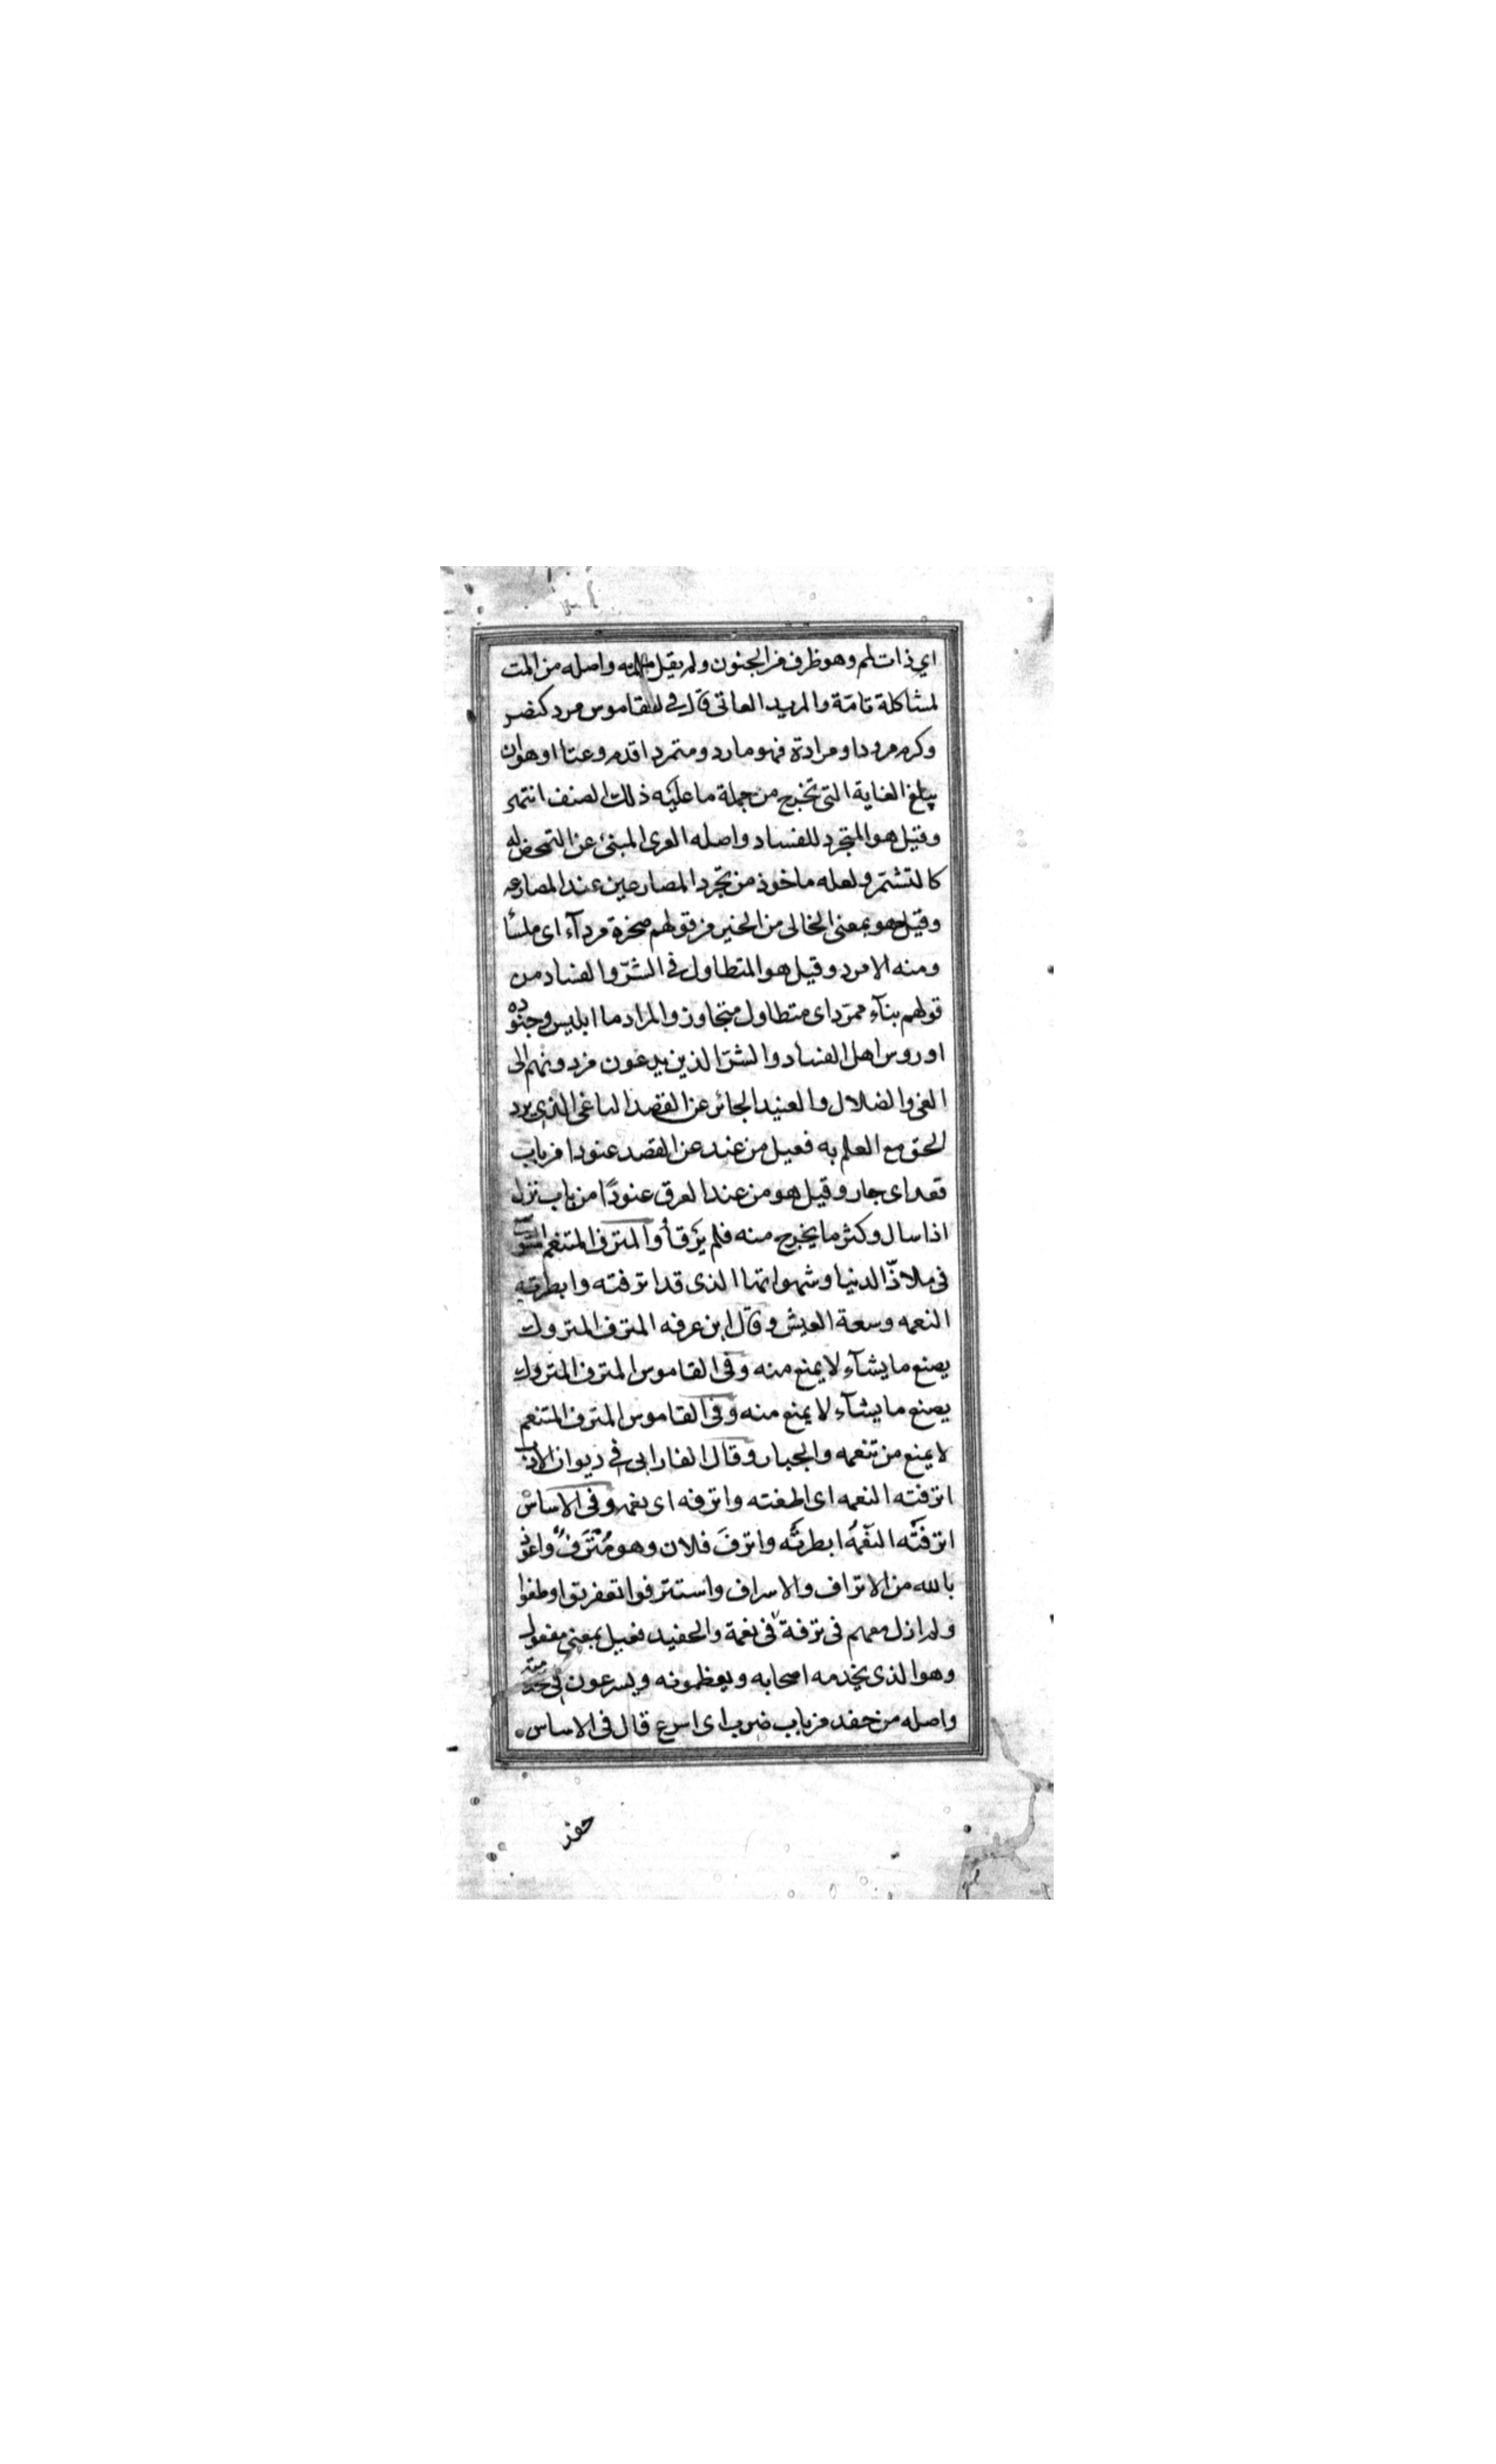 اي ذات لم وهو ظرف من الجنون ولم يقل ملمه واصله من المت
لمشاكلة تامّة والمريد العاتى قال في القاموس مرد كنصر
وكرم مرودا ومرادة فهو مارد ومتمرد اقدم وعتا او هو ان
يبلغ الغاية التى تخرج من جملة ما عليه ذلك الصنف انتهى
وقيل هو المتجرد للفساد واصله العرى المبنئ عن التمحض له
كالتشمّر ولعله ماخوذ من تجرد المصارعين عند المصارعه
وقيل هو بمعنى الخالى من الخير من قولهم صخرة مردآء اى ملسأ
ومنه الامرد وقيل هو المتطاول في الشرّ والفساد من
قولهم بنآء ممرّد اى متطاول متجاوز والمراد هما ابليس وجنوده
او روس اهل الفساد والشرّ الذين يدعون من دونهم الى
الغى والضلال والعنيد الجائر عن القصد الباغى الذى يرد
الحق مع العلم به فعيل من عند عن القصد عنودا من باب
قعد اى جار وقيل هو من عند العرق عنودًا من باب نزل
اذا سال وكثر ما يخرج منه فلم يرقأ والمترف المتنعم
فى ملاذّ الدنيا وشهواتها الذى قد اترفته وابطرته
النعمه وسعة العيش وقال ابن عرفه المترف المتروك
يصنع ما يشآء لا يمنع منه وفى القاموس المترف المتروك
يصنع ما يشآء لا يمنع منه وفى القاموس المترف المتنعم
لا يمنع من تنعمه والجبار وقال الفارابى فى ديوان الادب
اترفته النعمه اى اطغته واترفه اى نعمه وفى الاساس
اترفتَه النّعمُه ابطرتْه واترفَ فلان وهو مُتْرَفٌ واعوذ
بالله من الاتراف والاسراف واستترفوا تعفرتوا وطغوا
ولم ازل معهم فى ترفة فى نعمة والحفيد فعيل بمعنى مفعول
وهو الذى يخدمه اصحابه ويعظمونه ويسرعون فى خدمته
واصله من حفد من باب ضرب اى اسرع قال فى الاساس
حفد